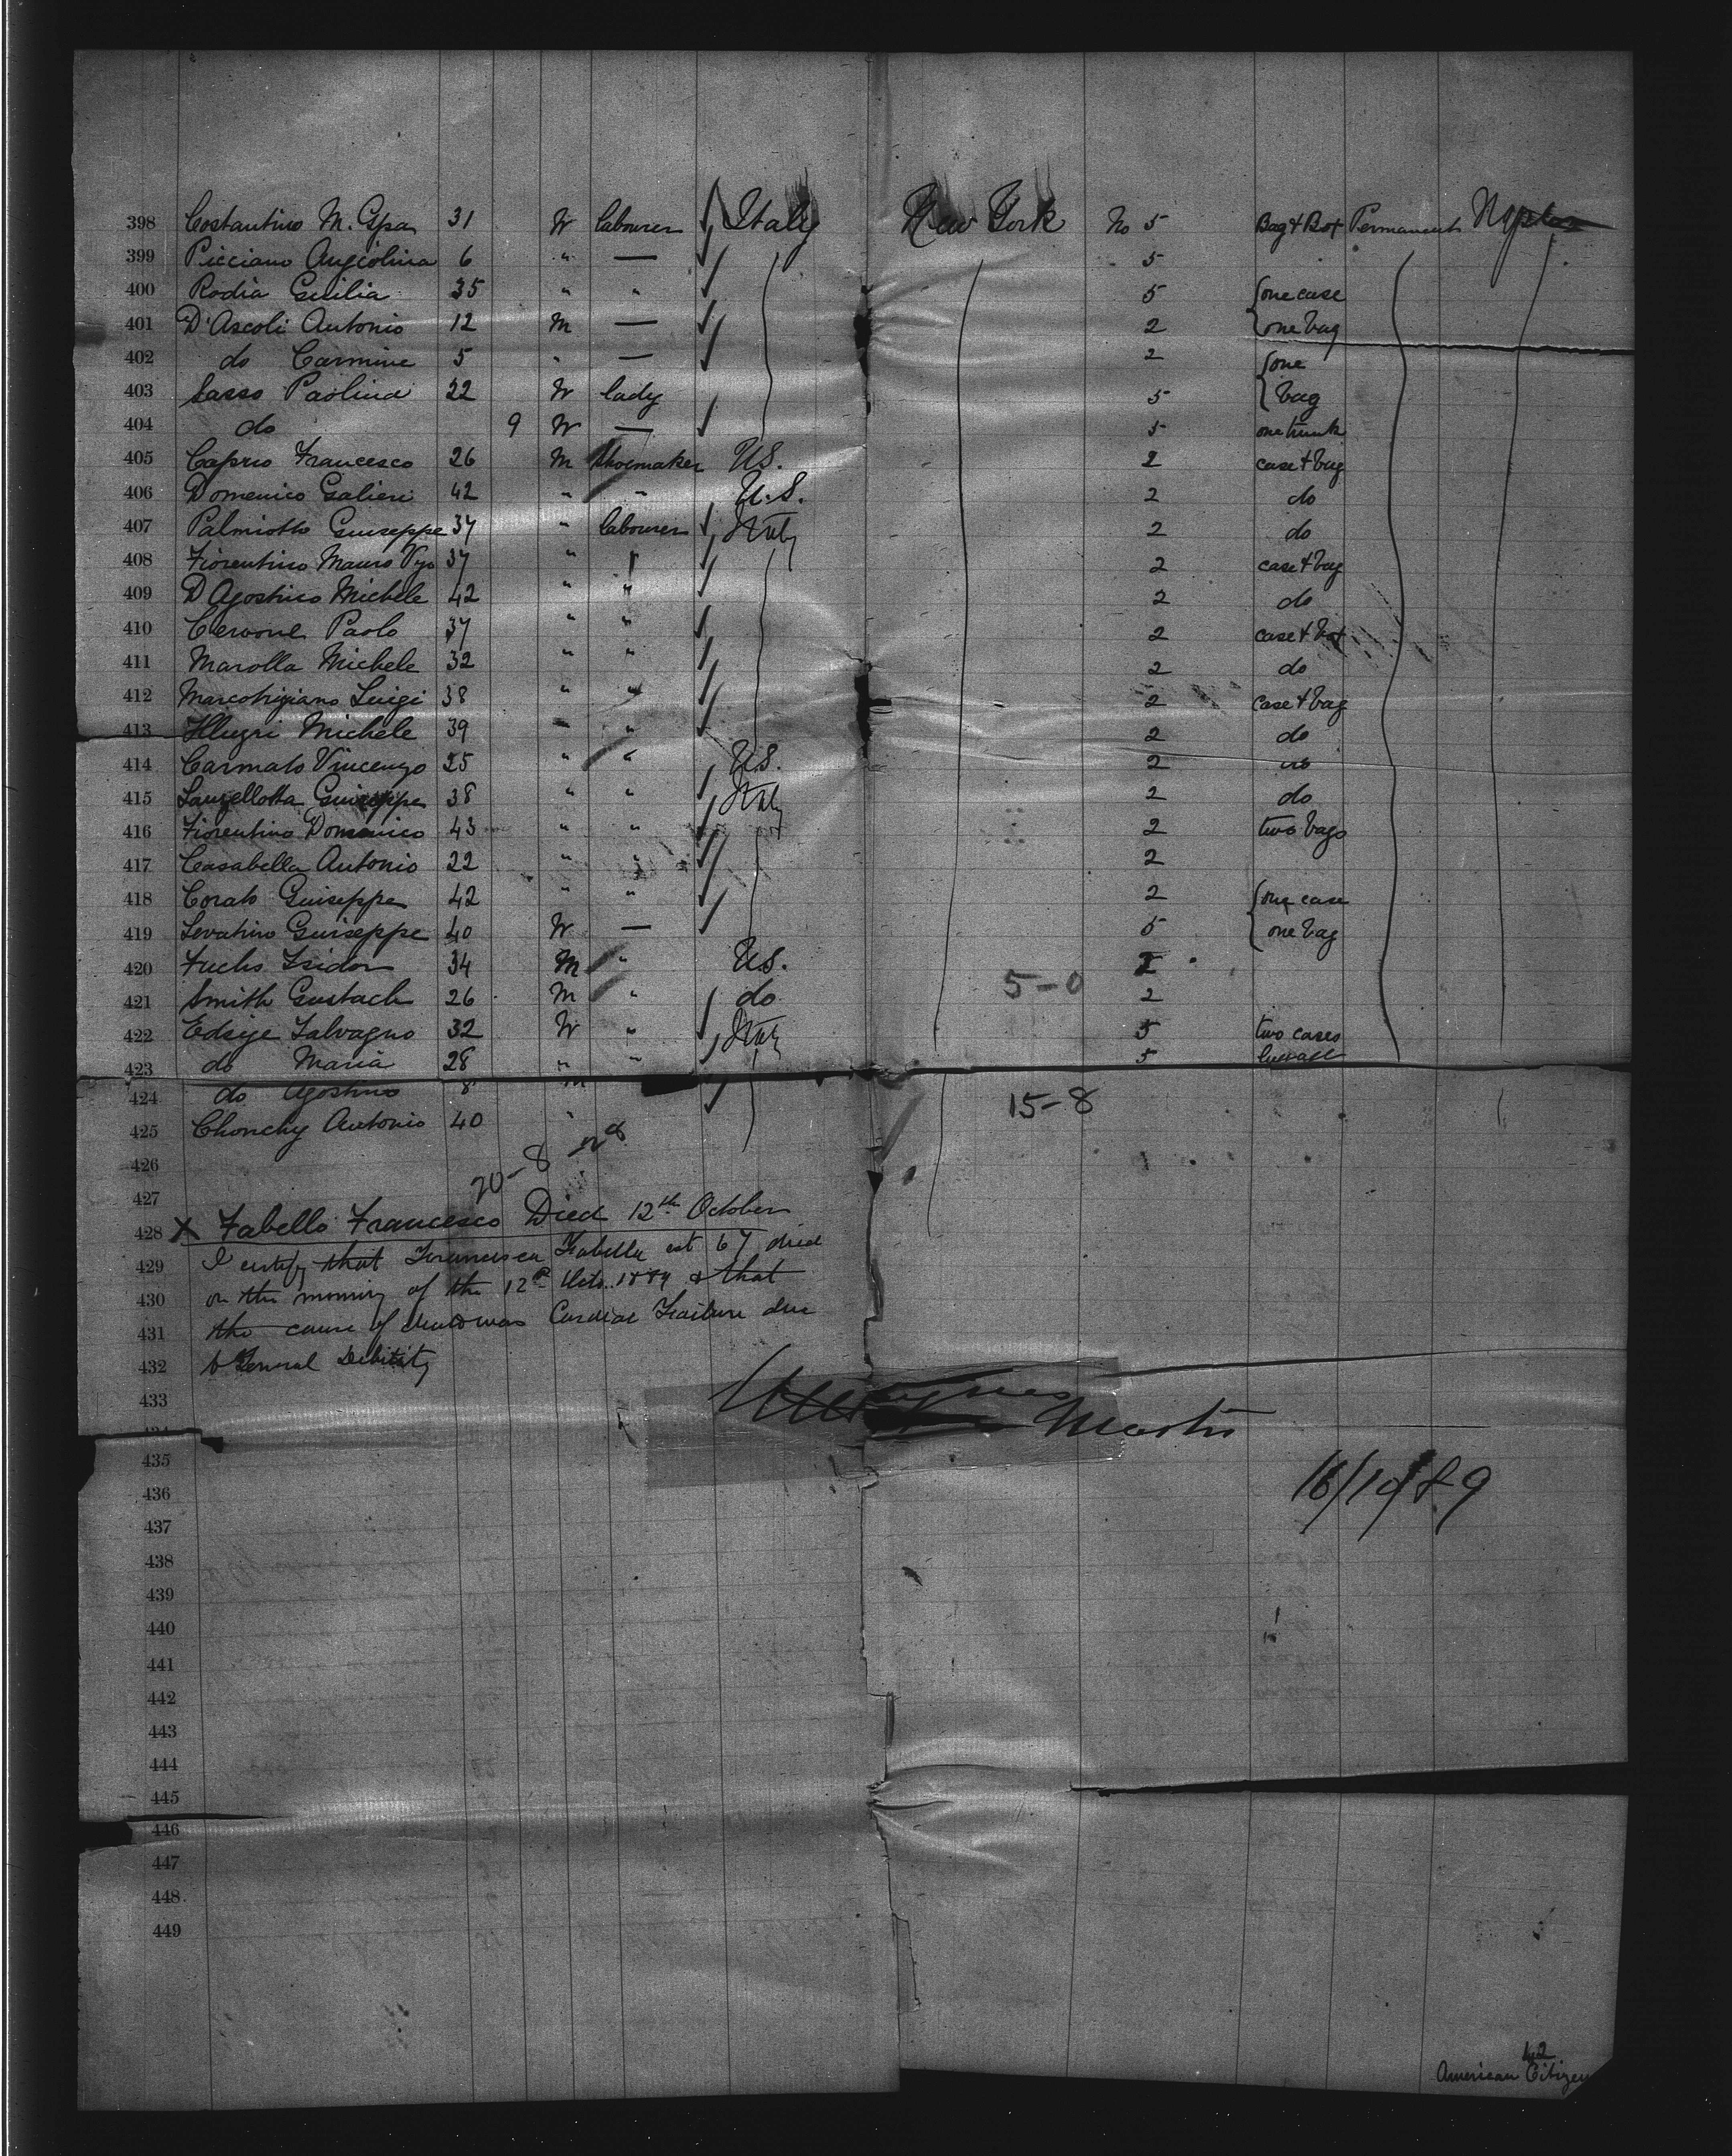 398 Costantino M. Gpa 31 W labourer Italy New York No 5 Bag & Box Permanent Naples
399 Picciano Angiolina 6 " — 5
400 Rodia Giulia 35 " " 5 one case
401 D'Ascoli Antonio 12 M — 2 one bag
402 do Carmine 5 " — 2 one
403 Sasso Paolina 22 W lady 5 bag
404 do 9 W — 5 one trunk
405 Caprio Francesco 26 M Shoemaker U.S. 2 case & bag
406 Domenico Galieri 42 " " U.S. 2 do
407 Palmiotto Guiseppe 37 " labourer Italy 2 do
408 Fiorentino Mauro 37 " " 2 case & bag
409 D Agostino Michele 42 " " 2 do
410 Cervone Paolo 37 " " 2 case & box
411 Marolla Michele 32 " " 2 do
412 Marcotrigiano Luigi 38 " " 2 case & bag
413 Michele 39 " " 2 do
414 Carmato Vincenzo 25 " " U.S. 2 do
415 Lanzellotta Guiseppe 38 " " Italy 2 do
416 Fiorentino Domenico 43 " " 2 two bags
417 Casabella Antonio 22 " " 2
418 Corato Guiseppe 42 " " 2 one case
419 Levatino Guiseppe 40 W — 5 one bag
420 Fuchs Isidor 34 M " U.S. 2
421 Smith Gustach 26 M " do 5-0 2
422 Edvige Salvagno 32 W " Italy 5 two cases
423 do Maria 28 " " 5
424 do Agostino 8 M 15-8
425 Chonchy Antonio 40 "
426
20-8
427
428 X Fabello Francesco Died 12th October
429 I certify that Francisca Fabella aet 67 died
430 on the morning of the 12th Octo. 1889 & that
431 the cause of death was Cardiac Failure due
432 to General Debility
433
Martin
434
435
16/10/89
436
437
438
439
440
441
442
443
444
445
446
447
448
449
42
American Citizen